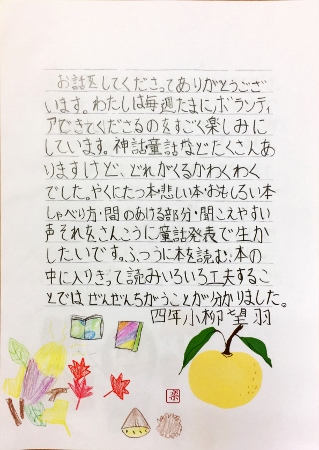 お話をしてくださってありがとうござ
います。わたしは毎週たまに、ボランティ
アできてくださるのをすごく楽しみに
しています。神話童話などたくさんあ
りますけど、どれがくるかわくわく
でした。やくにたつ本・悲しい本・おもしろい本
しゃべり方・間のあける部分・聞こえやすい
声それをさんこうに童話発表で生か
したいです。ふつうに本を読む、本の
中に入りきって読みいろいろ工夫するこ
とでは、ぜんぜんちがうことが分かりました。
四年小柳望羽